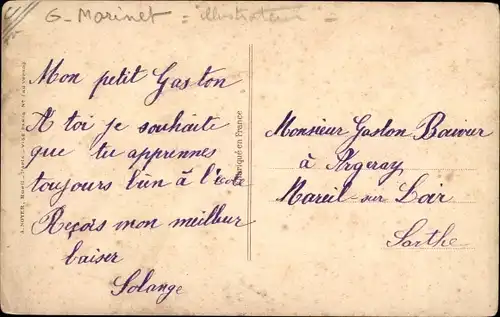 G - Marinet = illustrateur =
Mon petit Gaston
A toi je souhaite
que tu apprennes
toujours bien à l'école
Reçois mon meilleur
baiser
Solange
Fabriqué en France
Monsieur Gaston
à Argeray
Mareil sur Loir
Sarthe
A. NOYER